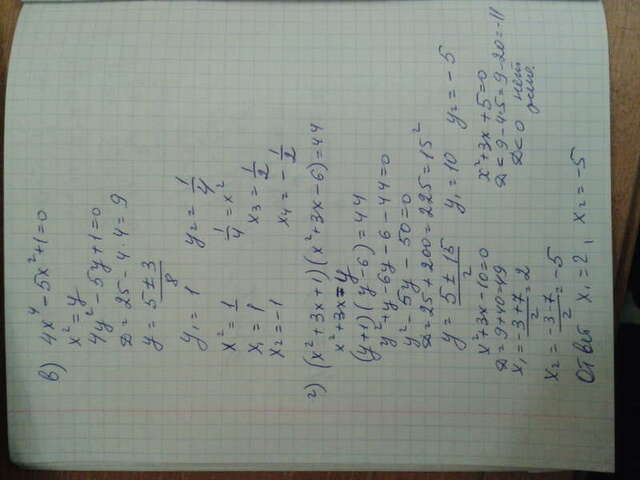 в) 4x⁴ - 5x² + 1 = 0
x² = y
4y² - 5y + 1 = 0
D = 25 - 4 · 4 = 9
y = (5 ± 3)/8
y₁ = 1 y₂ = 1/4
x² = 1 1/4 = x²
x₁ = 1 x₃ = 1/2
x₂ = -1 x₄ = -1/2
г) (x² + 3x + 1)(x² + 3x - 6) = 44
x² + 3x = y
(y + 1)(y - 6) = 44
y² + y - 6y - 6 - 44 = 0
y² - 5y - 50 = 0
D = 25 + 200 = 225 = 15²
y = (5 ± 15)/2 y₁ = 10 y₂ = -5
x² + 3x - 10 = 0 x² + 3x + 5 = 0
D = 9 + 40 = 49 D = 9 - 4·5 = 9 - 20 = -11
x₁ = (-3 + 7)/2 = 2 D < 0 нет
x₂ = (-3 - 7)/2 = -5
Ответ x₁ = 2, x₂ = -5